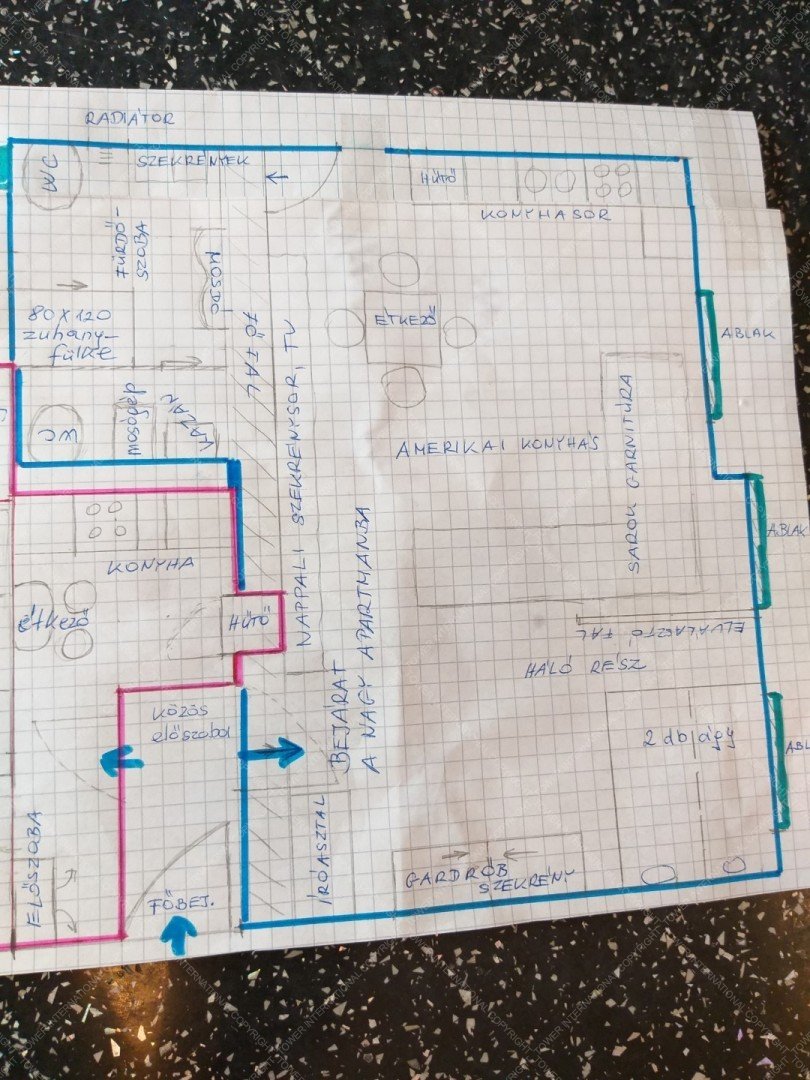 RADIÁTOR
WC
SZEKRÉNYEK
HŰTŐ
KONYHASOR
FÜRDŐ-
SZOBA
MOSDÓ
80 X 120
zuhany-
fülke
FŐFAL
ÉTKEZŐ
ABLAK
WC
mosógép
NAPPALI SZEKRÉNYSOR, TV
AMERIKAI KONYHÁS
SAROK GARNITÚRA
ABLAK
KONYHA
étkező
HŰTŐ
ELVÁLASZTÓ FAL
HÁLÓ RÉSZ
BEJÁRAT
A NAGY APARTMANBA
KÖZÖS
előszoba
2 db ágy
ABL
ELŐSZOBA
FŐBEJ.
ÍRÓASZTAL
GARDRÓB
SZEKRÉNY
COPYRIGHT TOWER INTERNATIONAL